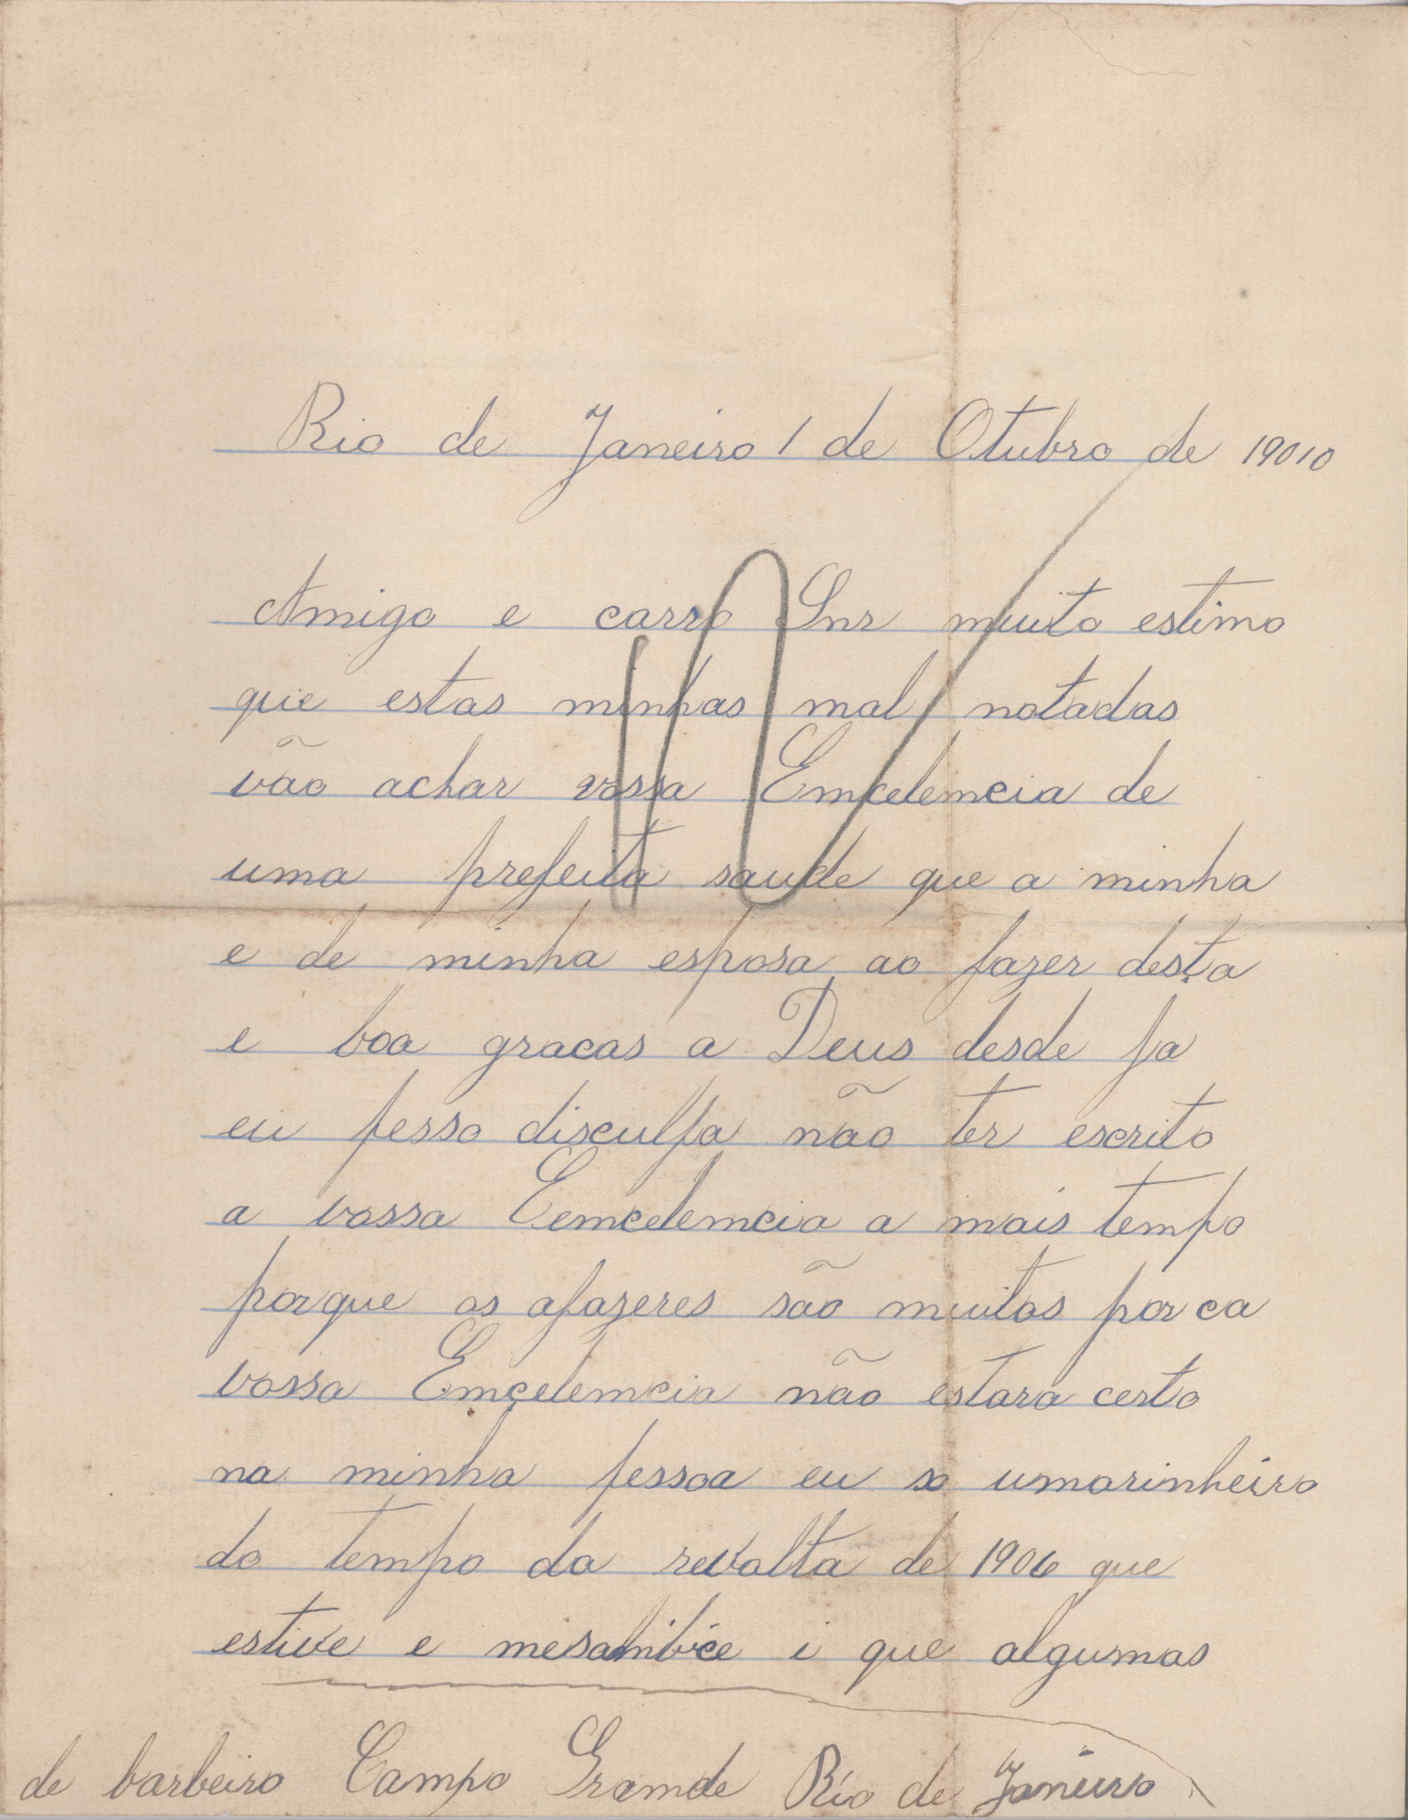 Rio de Janeiro 1 de Otubro de 19010
Amigo e carro Snr muito estimo
que estas minhas mal notadas
vão achar vossa Emcelemcia de
uma prefeita saude que a minha
e de minha esposa ao fazer desta
e boa gracas a Deus desde ja
eu pesso disculpa não ter escrito
a vossa Eemcelemcia a mais tempo
porque os afazeres são muitos por ca
vossa Emcelemcia não estara certo
na minha pessoa eu so umarinheiro
do tempo da revolta de 1906 que
estive e i que algumas
de barbeiro Campo Gramde Rio de Janeiro